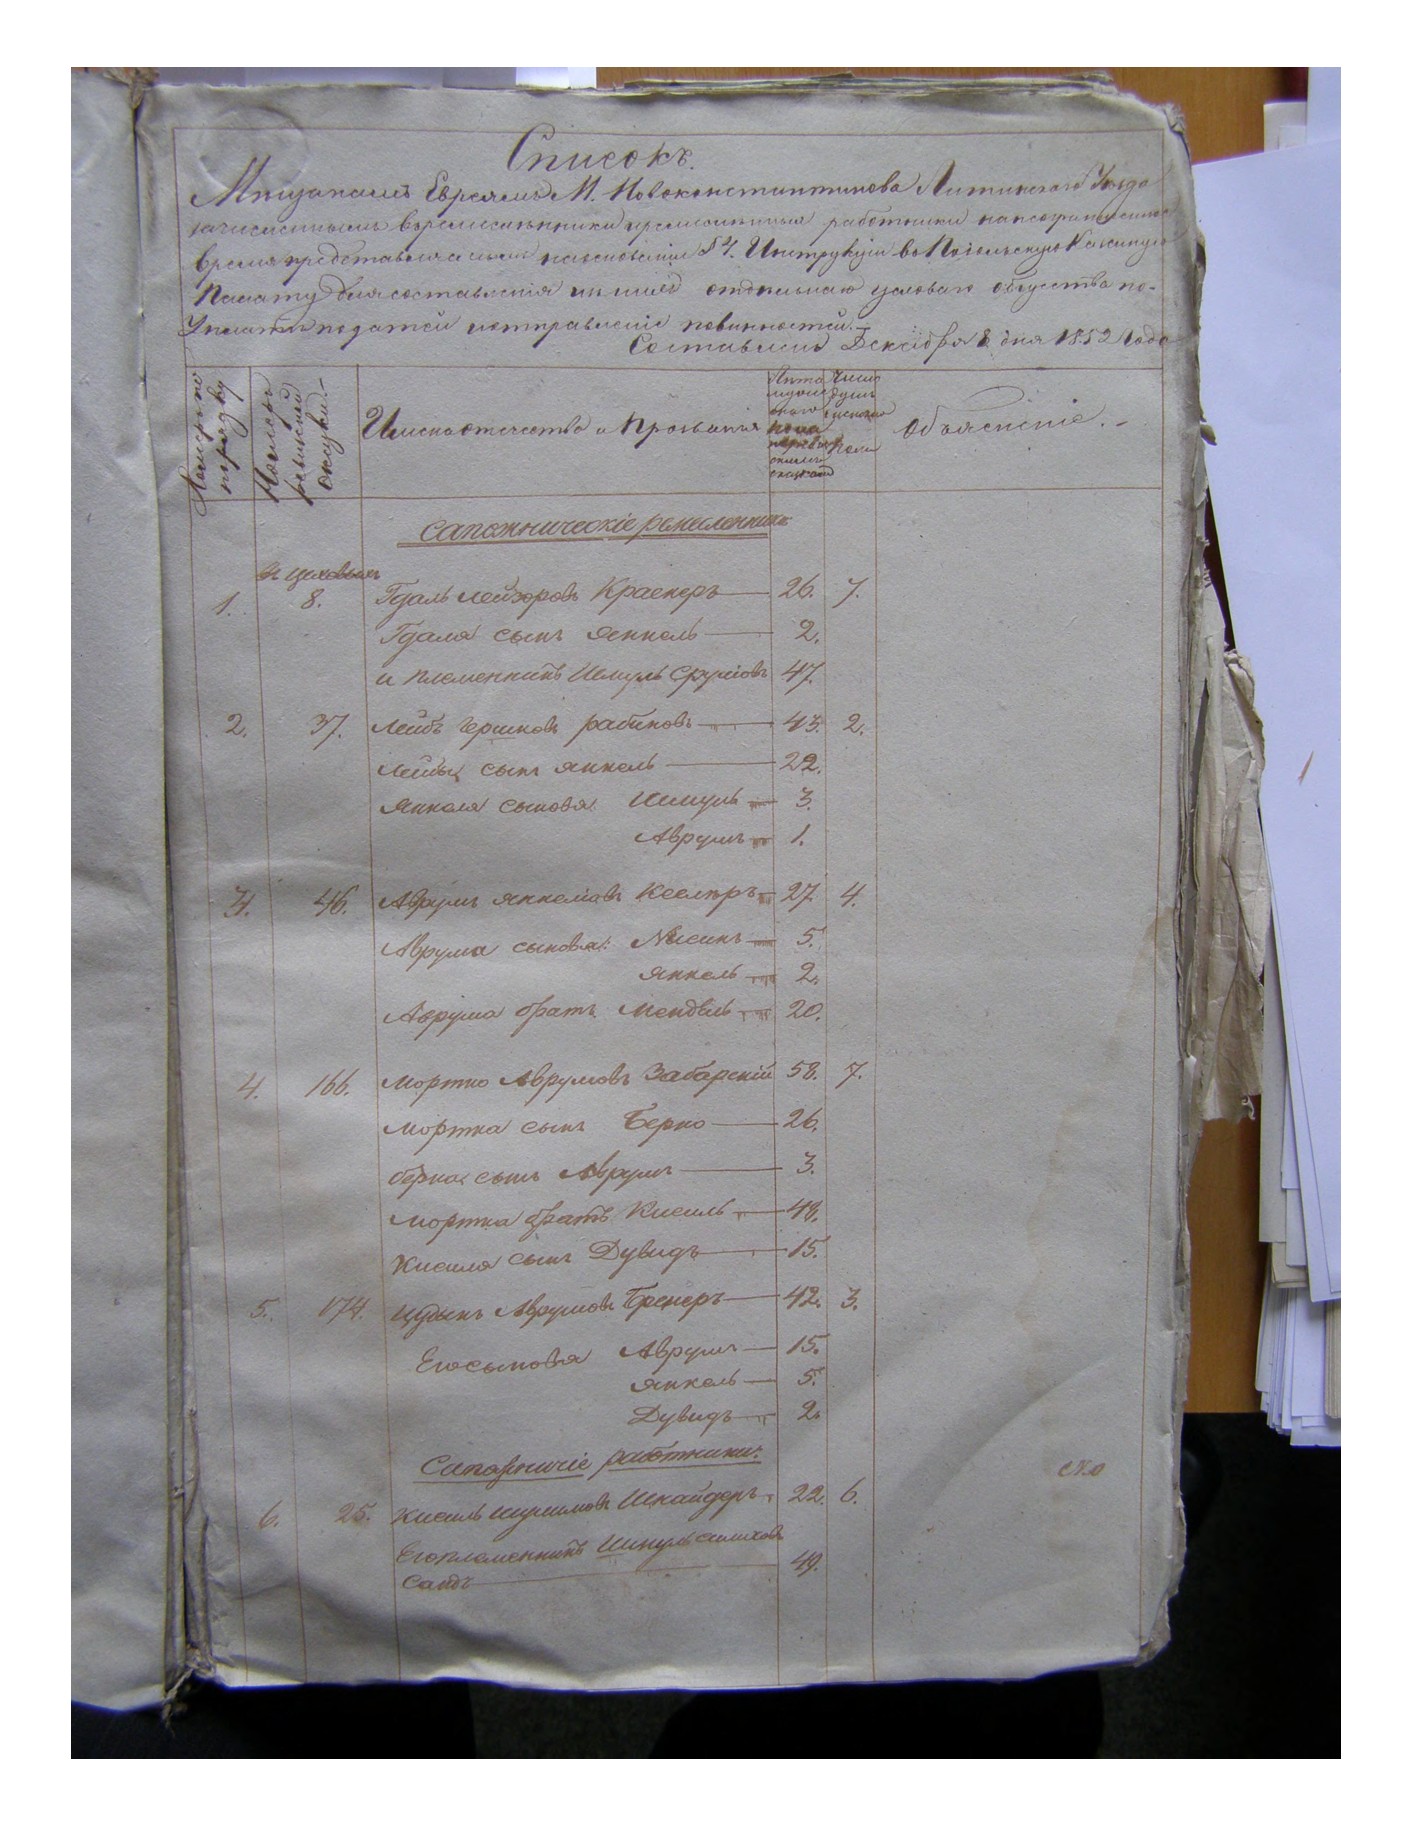 Списокъ.
Мѣщанамъ Евреямъ М. Новоконстантинова Литинскаго Уѣзда
работники
время представляемый на основаніи § 4. Инструкціи въ Подольскую Казенную
Палату для составленія отдѣльнаго общества по
уплатѣ податей и отправленіе повинностей.—
Составленъ Декабря 8 дня 1852 года
Номеръ по порядку
Номеръ ревизской сказки.—
Имена отечества и Прозванія
Лѣта
Число душъ
пола
Объясненіе.—
Сапожническіе ремесленники
1. 8. Гдаль Лейзоровъ Краснеръ 26. 7.
Гдаля сынъ Янкель 2.
и племенникъ Шмуль Срулiовъ 47.
2. 37. Лейбъ Гершковъ Рабиновъ 43. 2.
Лейбы сынъ Янкель 22.
Янкеля сыновья Шмуль 3.
Аврумъ 1.
3. 46. Аврумъ Янкелiовъ 27. 4.
Аврума сыновья: Нисинъ 5.
Янкель 2.
Аврума братъ Мендель 20.
4. 166. Мортко Аврумовъ Забарскій 58. 7.
Мортка сынъ Берко 26.
Берка сынъ Аврумъ 3.
Мортка братъ Кисиль 48.
Кисиля сынъ Дувидъ 15.
5. 174. Аврумовъ Бренеръ 42. 3.
Его сыновья Аврумъ 15.
Янкель 5.
Дувидъ 2.
Сапожничіе работники.
6. 25. Кисиль Шнайдеръ 22. 6.
Его племенникъ Шмуль
49.